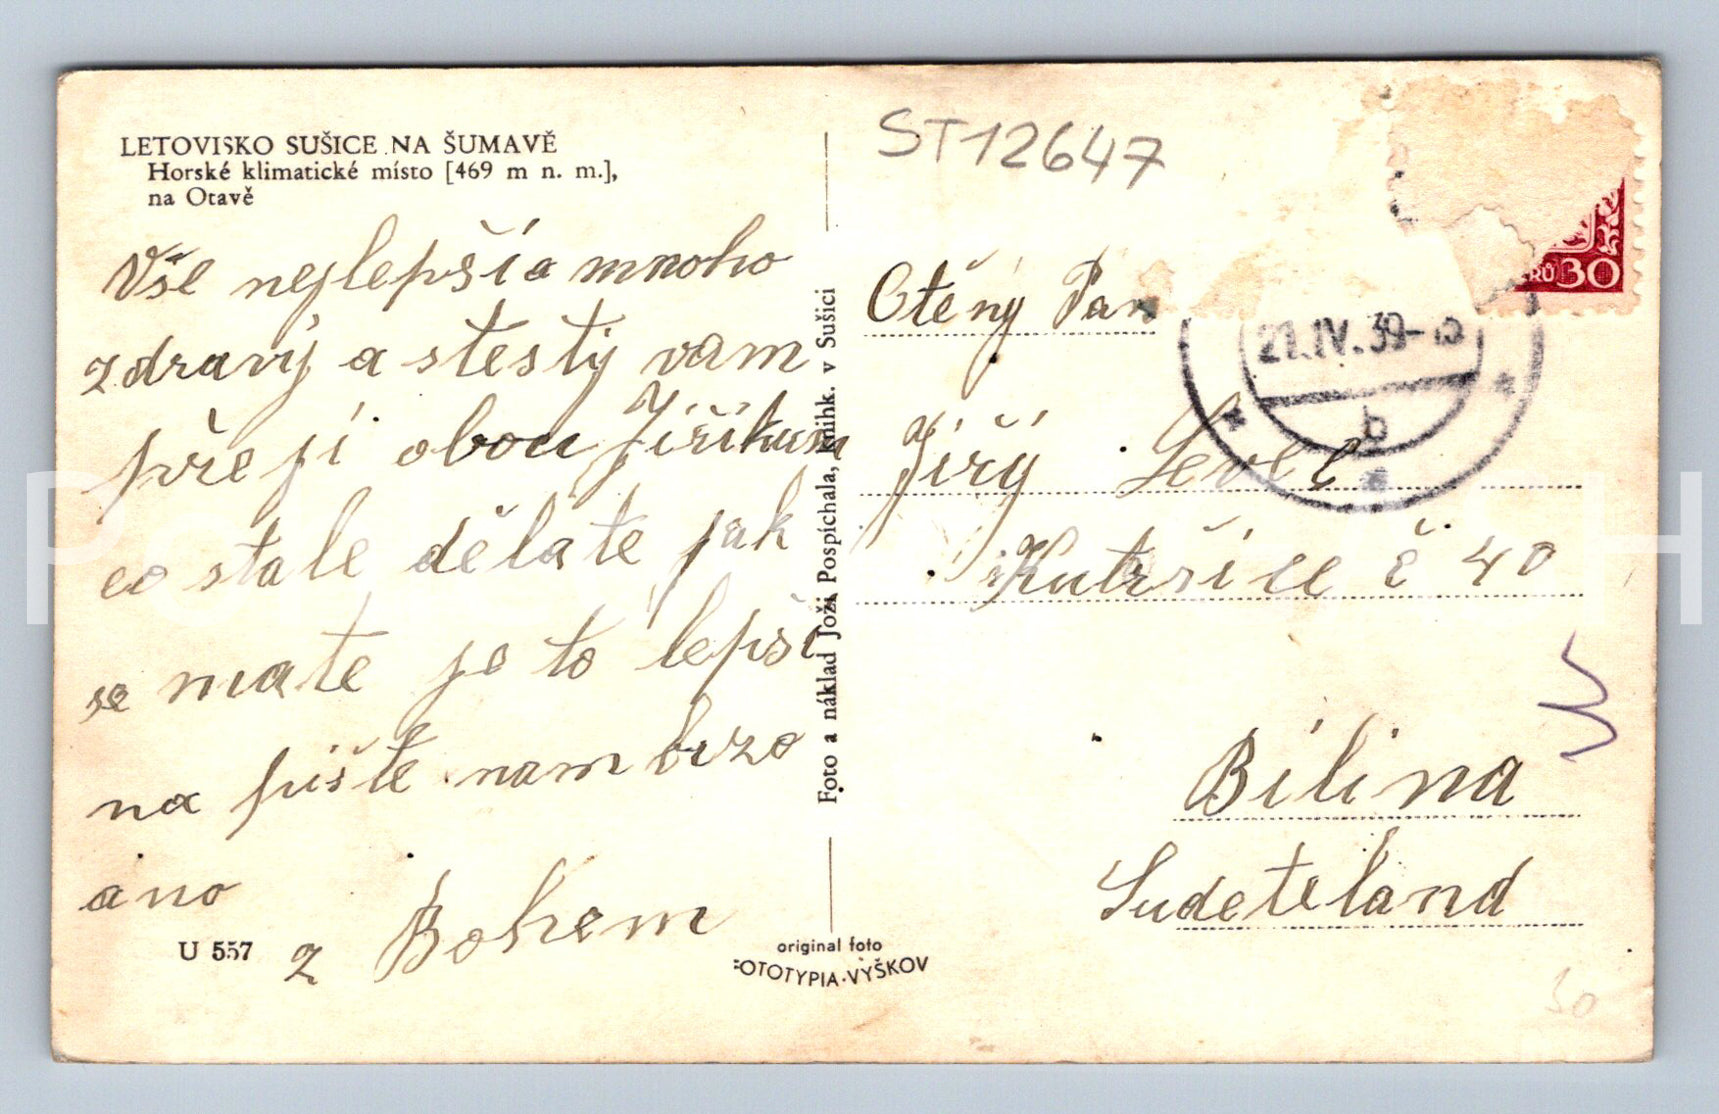 LETOVISKO SUŠICE NA ŠUMAVĚ
Horské klimatické místo [469 m n. m.],
na Otavě
Vše nejlepšía mnoho
zdravý a stestý vam
přeji obou Jiříkum
co stale dělate jak
se mate je to lepši
na pište nam brzo
ano
z Bohem
U 557
Foto a náklad Joži Pospíchala, knihk. v Sušici
original foto
FOTOTYPIA-VYŠKOV
ST12647
30
21.IV.39
b
Ctěný Pan
Jiřý
č 40
Bílina
Sudeteland
30